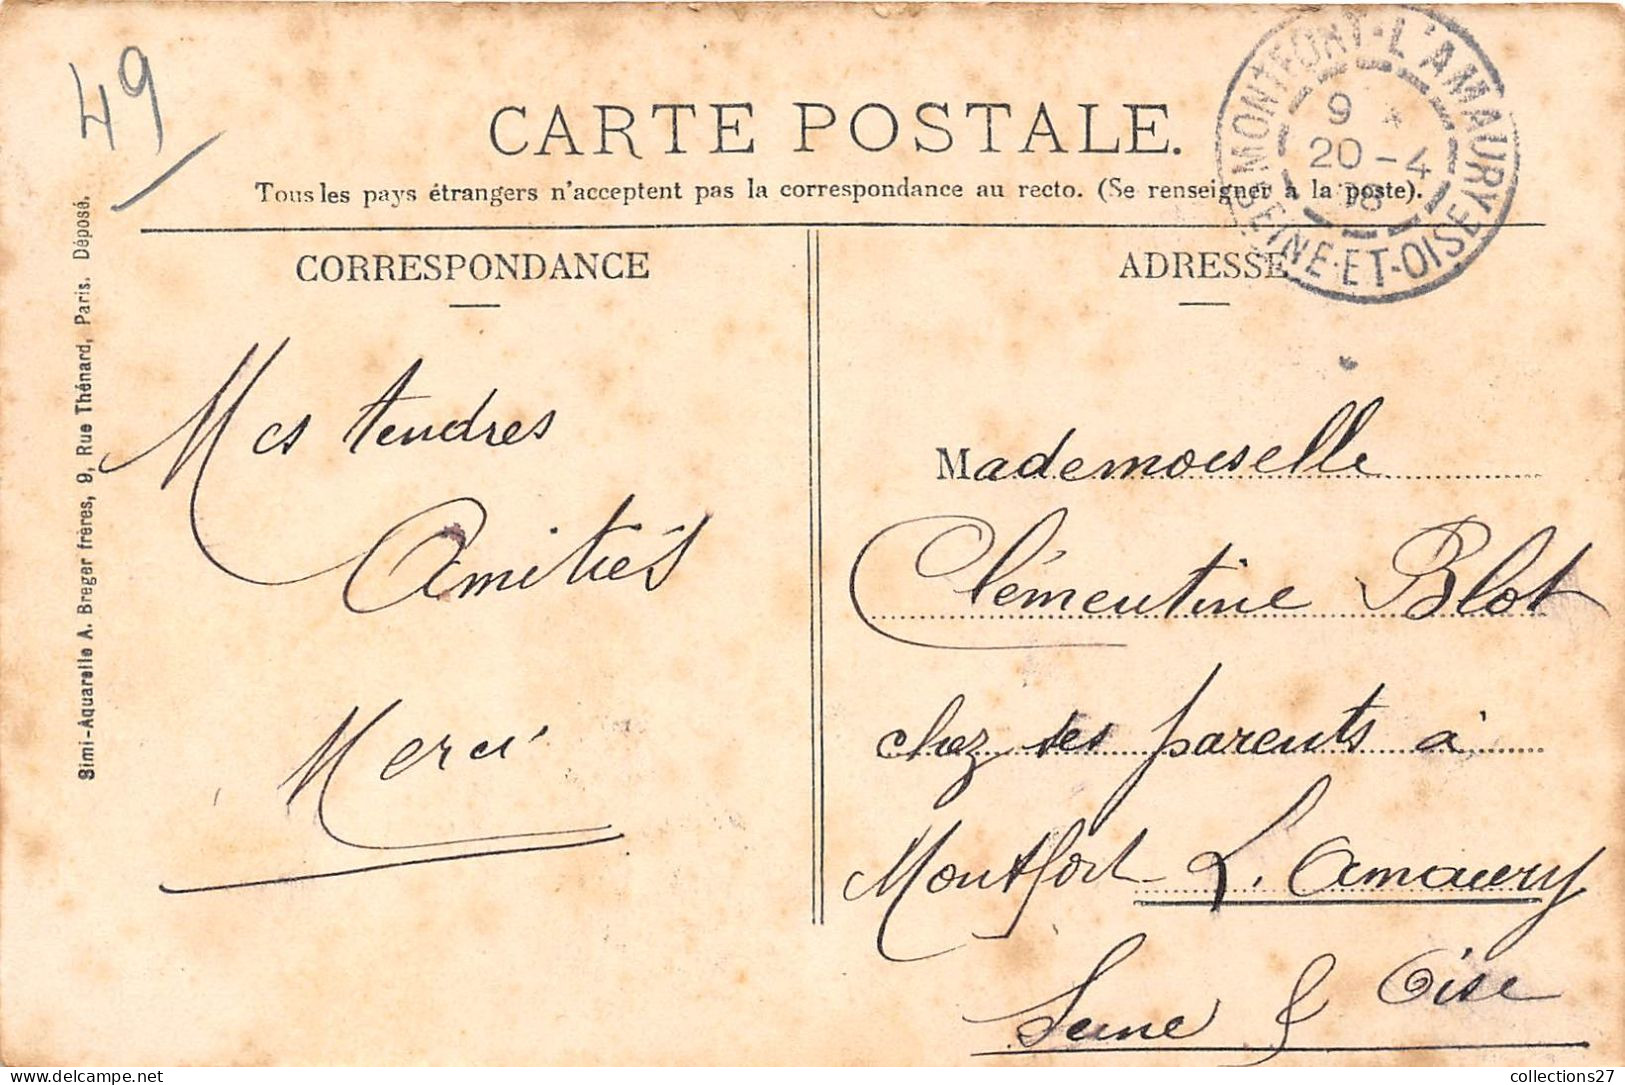 49
CARTE POSTALE.
Tous les pays étrangers n'acceptent pas la correspondance au recto. (Se renseigner à la poste).
MONTFORT-L'AMAURY
9 *
20 - 4
SEINE-ET-OISE
CORRESPONDANCE
Mes tendres
Amitiés
Merci
ADRESSE
Mademoiselle
Clémentine Blot
chez ses parents à
Montfort L. Amaury
Seine & Oise
Simi-Aquarelle A. Breger frères, 9, Rue Thénard, Paris. Déposé.
collections27